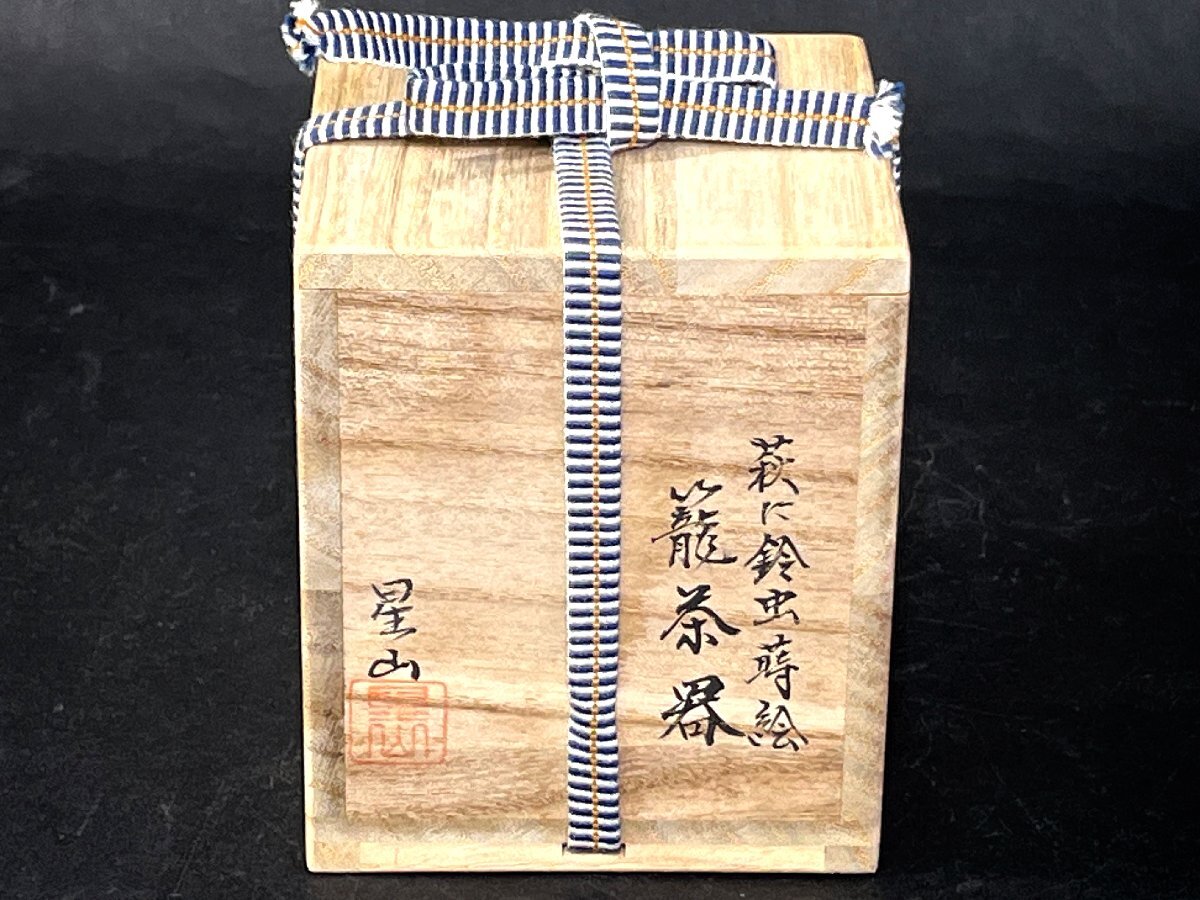 萩に鈴虫蒔絵
籠茶器
星山